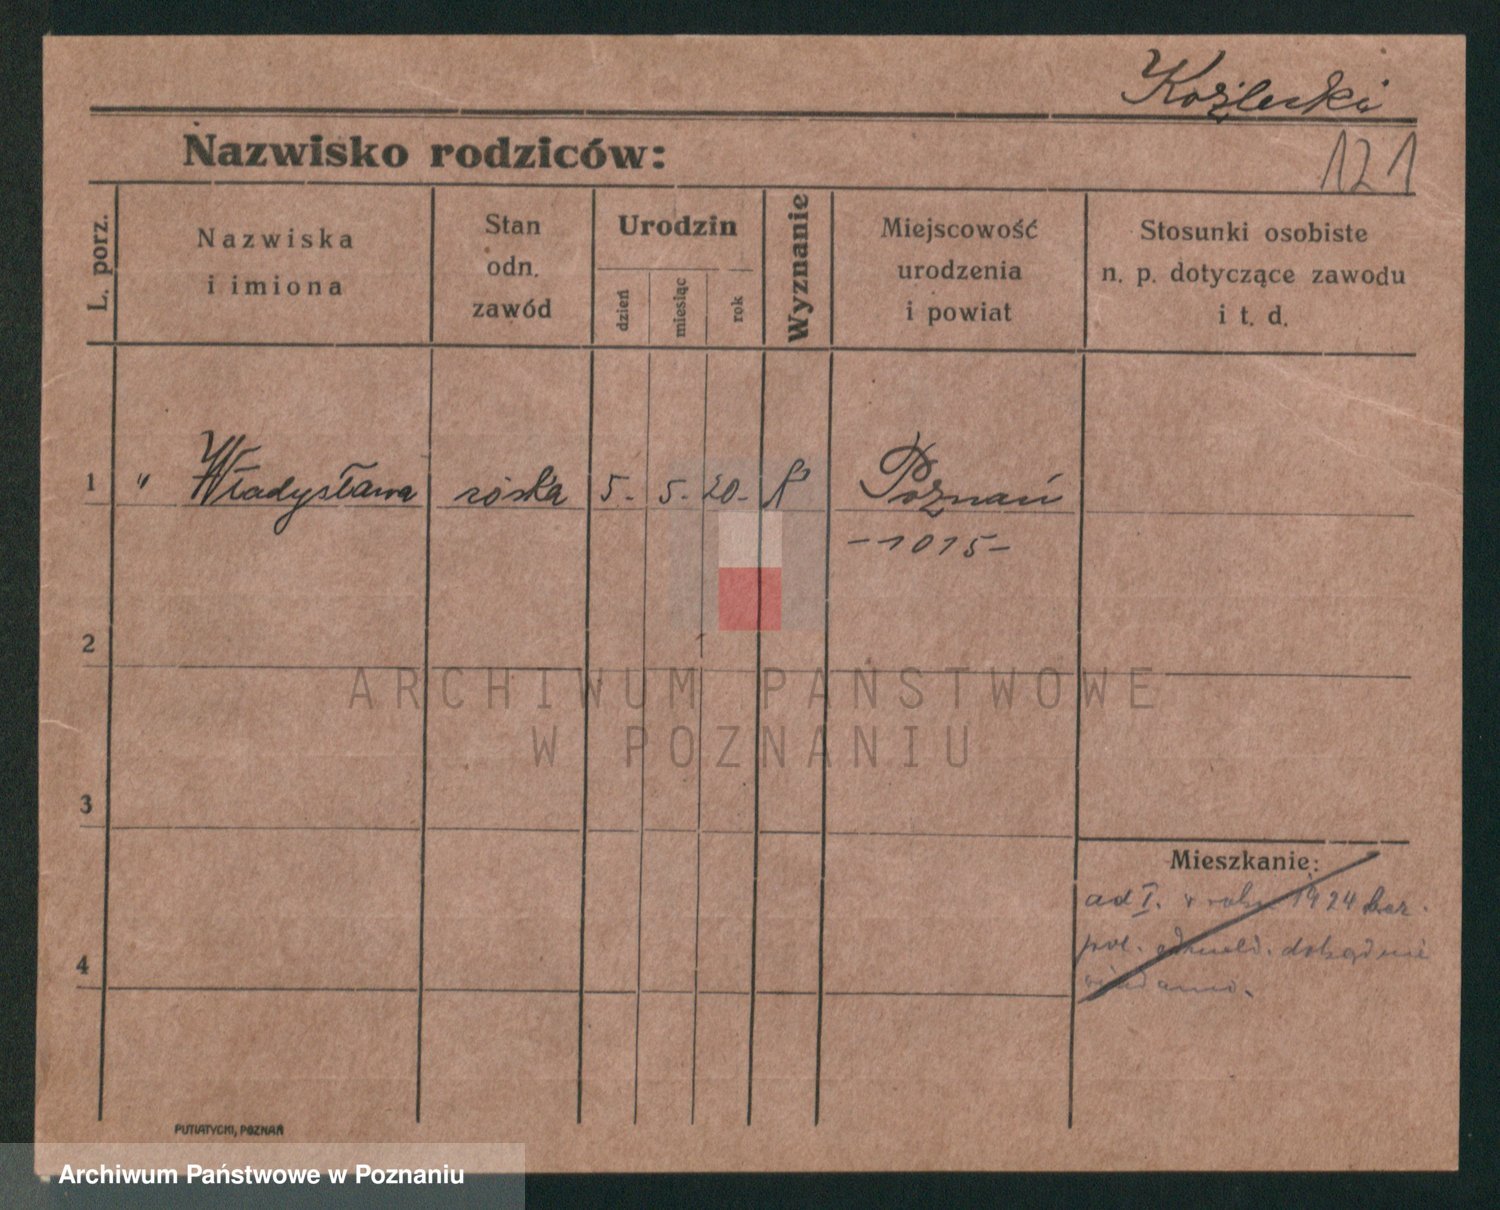 Koźlecki
Nazwisko rodziców:
121
L. porz.
Nazwiska
i imiona
Stan
odn.
zawód
Urodzin
dzień
miesiąc
rok
Wyznanie
Miejscowość
urodzenia
i powiat
Stosunki osobiste
n. p. dotyczące zawodu
i t. d.
1 " Władysława córka 5. 5. 20. K Poznań
-1015-
2
ARCHIWUM PAŃSTWOWE
W POZNANIU
3
Mieszkanie:
ad I. w roku 1924
pol.
4
PUTIATYCKI, POZNAŃ
Archiwum Państwowe w Poznaniu